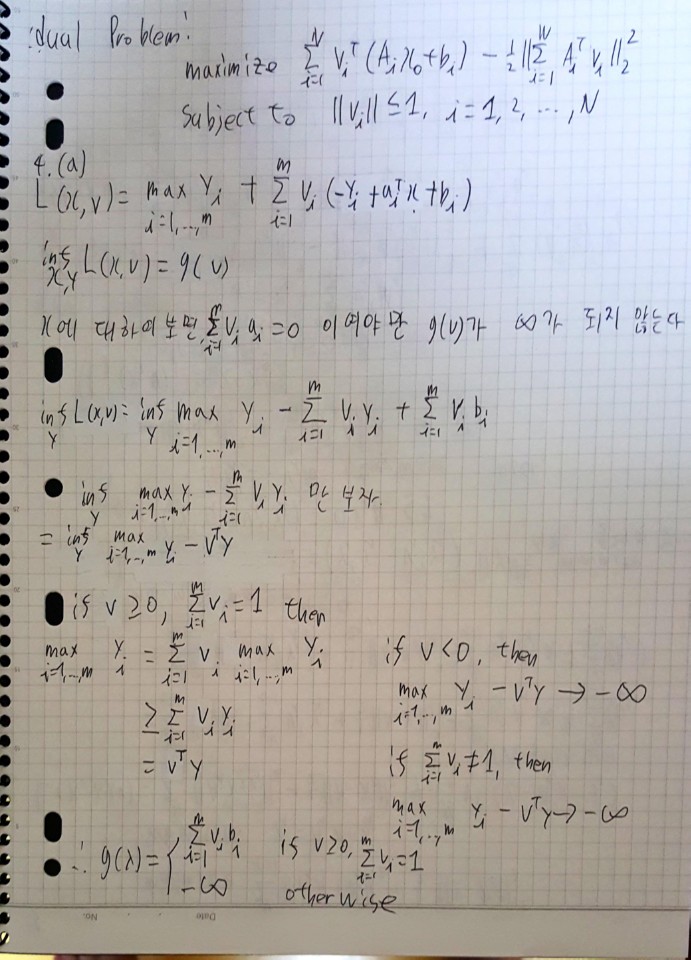 dual Problem:
maximize Σ_{i=1}^{N} v_i^T (A_i x_0 + b_i) - 1/2 ||Σ_{i=1}^{N} A_i^T v_i||_2^2
subject to ||v_i|| ≤ 1, i = 1, 2, ..., N
4. (a)
L(x,v) = max_{i=1,...,m} y_i + Σ_{i=1}^{m} v_i (-y_i + a_i^T x + b_i)
inf_{x,y} L(x,v) = g(v)
x에 대하여 보면, Σ_{i=1}^{m} v_i a_i = 0 이여야만 g(v)가 ∞가 되지 않는다
inf_y L(x,v) = inf_y max_{i=1,...,m} y_i - Σ_{i=1}^{m} v_i y_i + Σ_{i=1}^{m} v_i b_i
inf_y max_{i=1,...,m} y_i - Σ_{i=1}^{m} v_i y_i 만 보자.
= inf_y max_{i=1,...,m} y_i - v^T y
if v ≥ 0, Σ_{i=1}^{m} v_i = 1 then
max_{i=1,...,m} y_i = Σ_{i=1}^{m} v_i max_{i=1,...,m} y_i
≥ Σ_{i=1}^{m} v_i y_i
= v^T y
if v < 0, then
max_{i=1,...,m} y_i - v^T y → -∞
if Σ_{i=1}^{m} v_i ≠ 1, then
max_{i=1,...,m} y_i - v^T y → -∞
∴ g(λ) = { Σ_{i=1}^{m} v_i b_i if v ≥ 0, Σ_{i=1}^{m} v_i = 1
-∞ otherwise
No. Date